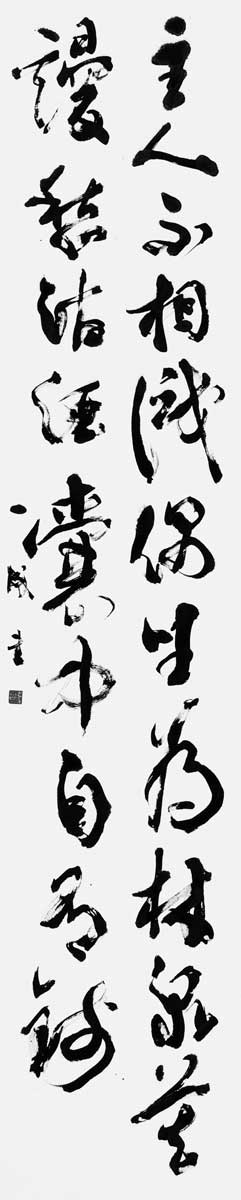 主人不相識偶坐為林泉莫
謾愁沽酒囊中自有錢
一成書